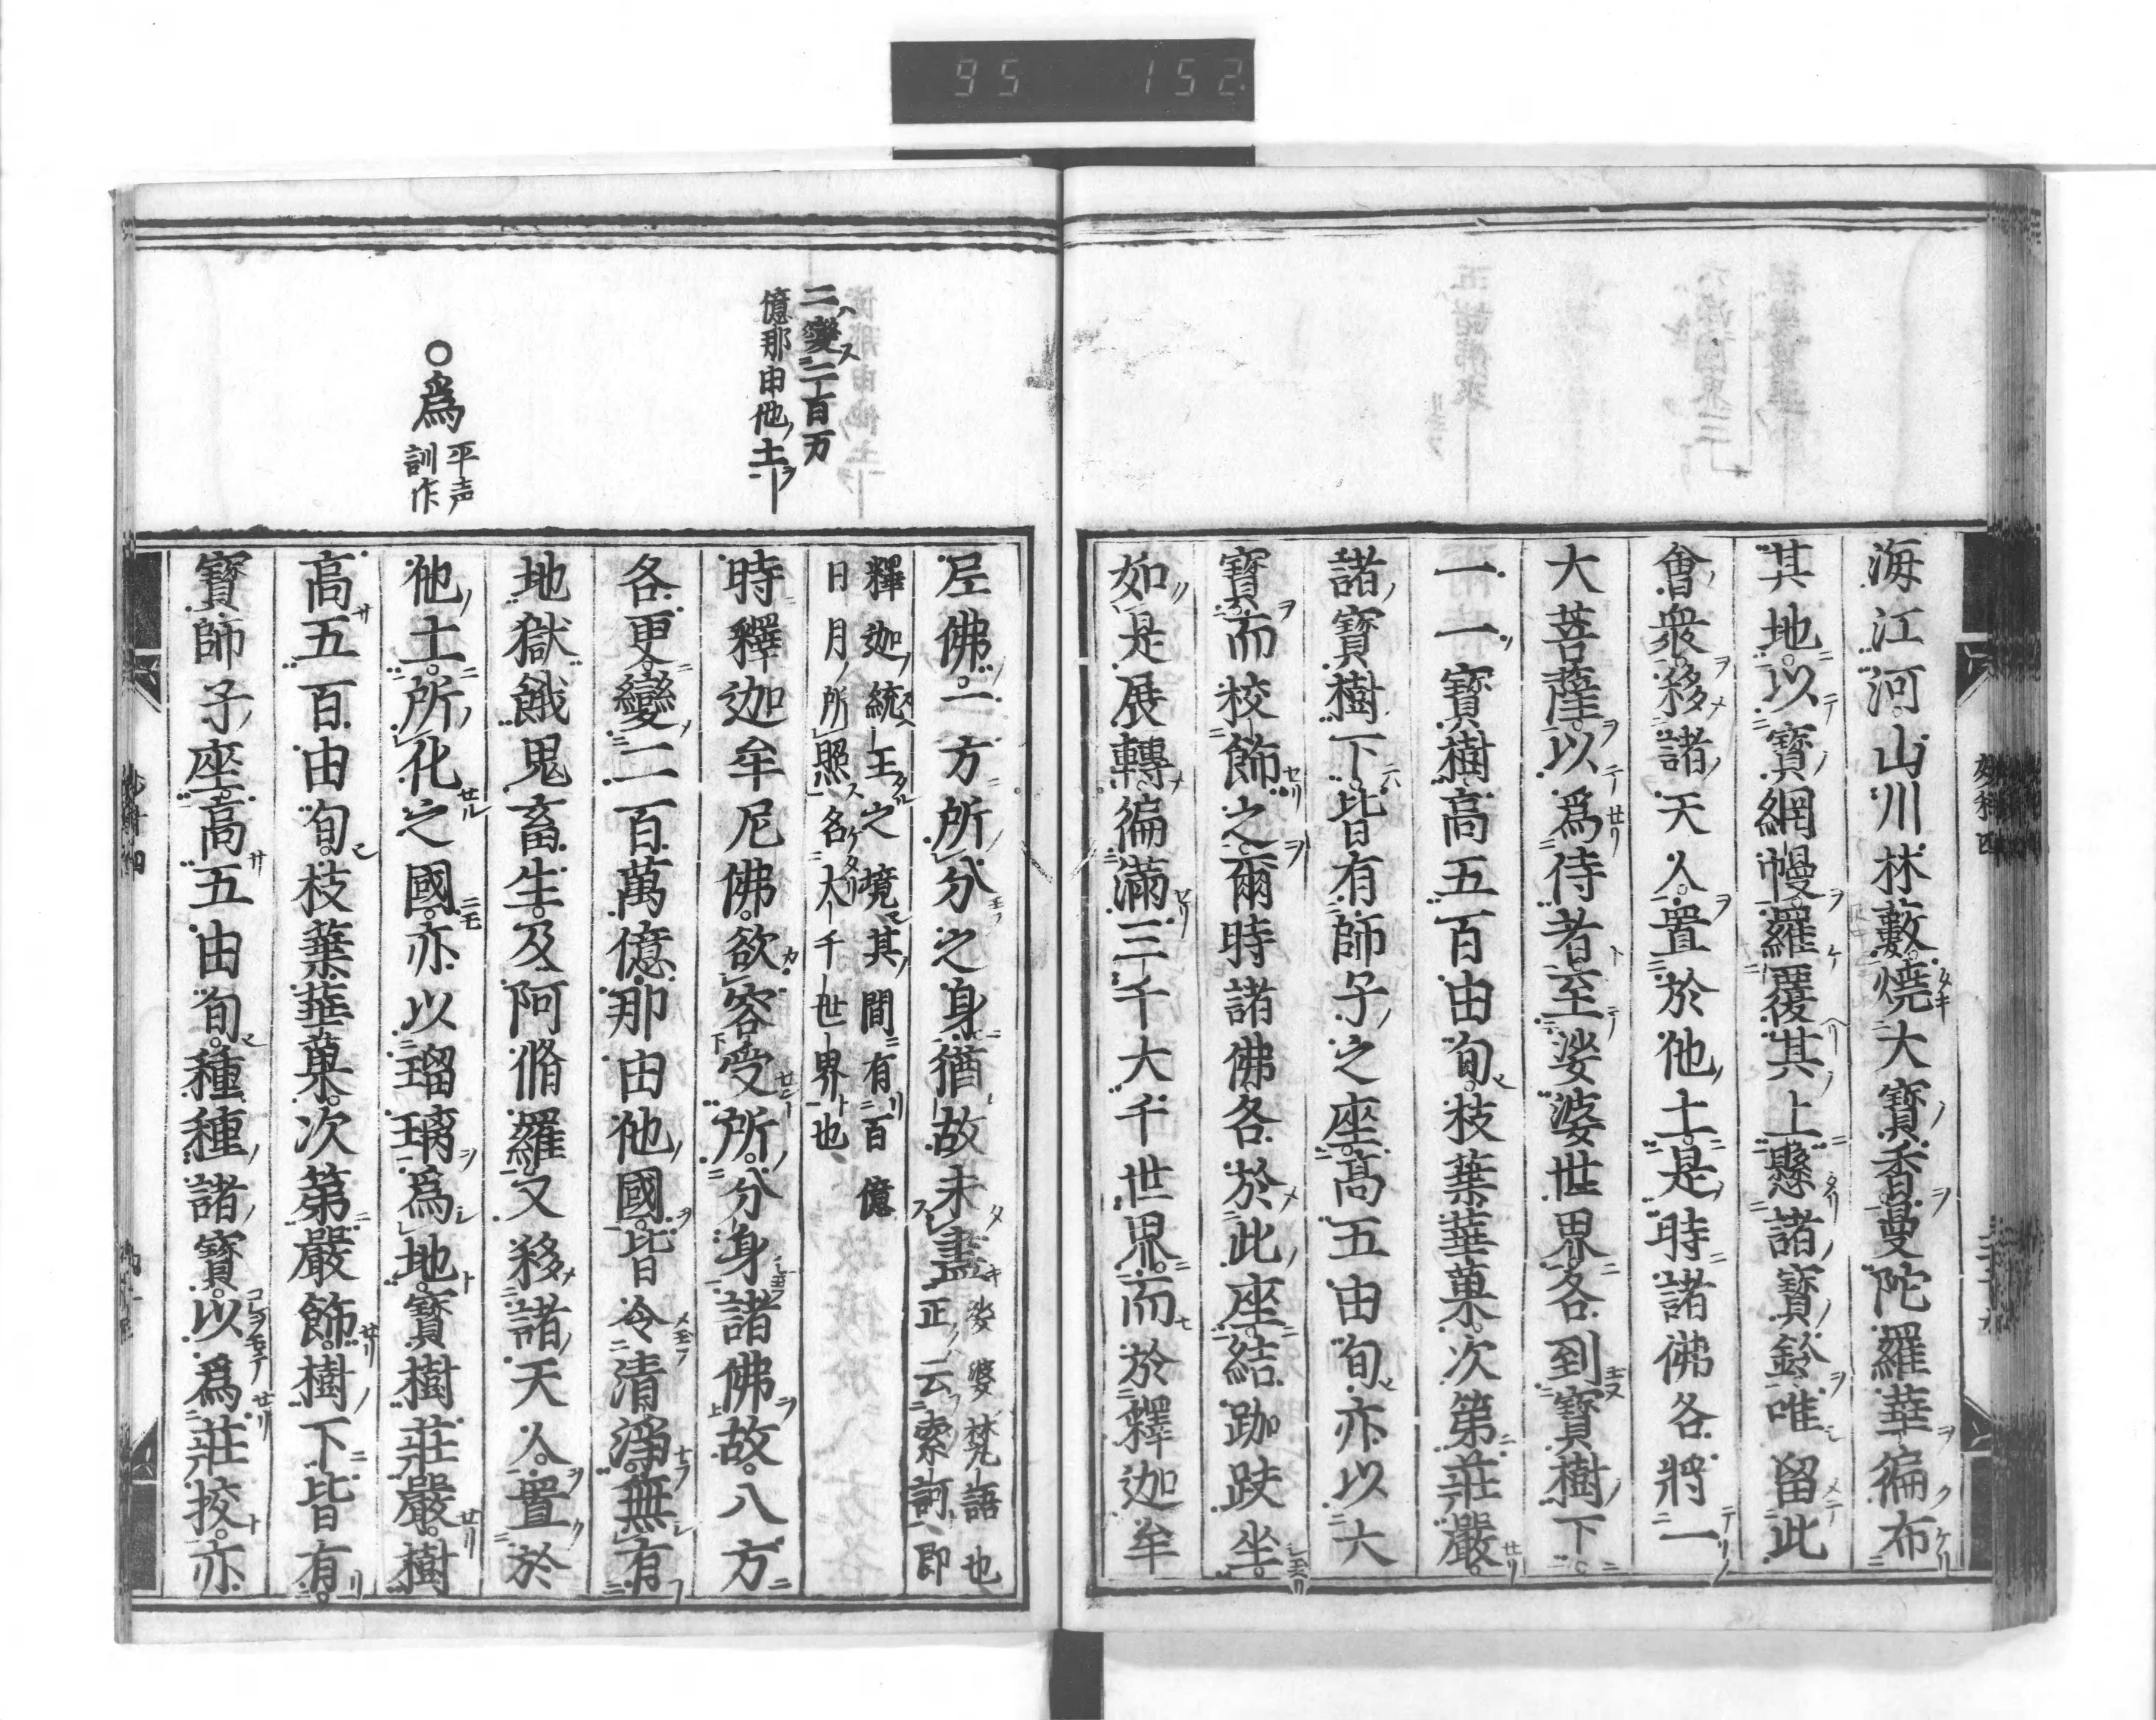 95 152
海江河山川林藪燒大寶香曼陀羅華徧布
其地以寶網幔羅覆其上懸諸寶鈴唯留此
會衆移諸天人置於他土是時諸佛各將一
大菩薩以爲侍者至娑婆世界各到寶樹下
一一寶樹高五百由旬枝葉華菓次第莊嚴
諸寶樹下皆有師子之座高五由旬亦以大
寶而校飾之爾時諸佛各於此座結跏趺坐
如是展轉徧滿三千大千世界而於釋迦牟
二變二百万
億那由他土
○爲 平声
訓作
尼佛一方所分之身猶故未盡 娑婆梵語也
正云索訶即
釋迦統王之境其間有百億
日月所照名大千世界也
時釋迦牟尼佛欲容受所分身諸佛故八方
各更變二百萬億那由他國皆令清淨無有
地獄餓鬼畜生及阿脩羅又移諸天人置於
他土所化之國亦以瑠璃爲地寶樹莊嚴樹
高五百由旬枝葉華菓次第嚴飾樹下皆有
寶師子座高五由旬種種諸寶以爲莊挍亦